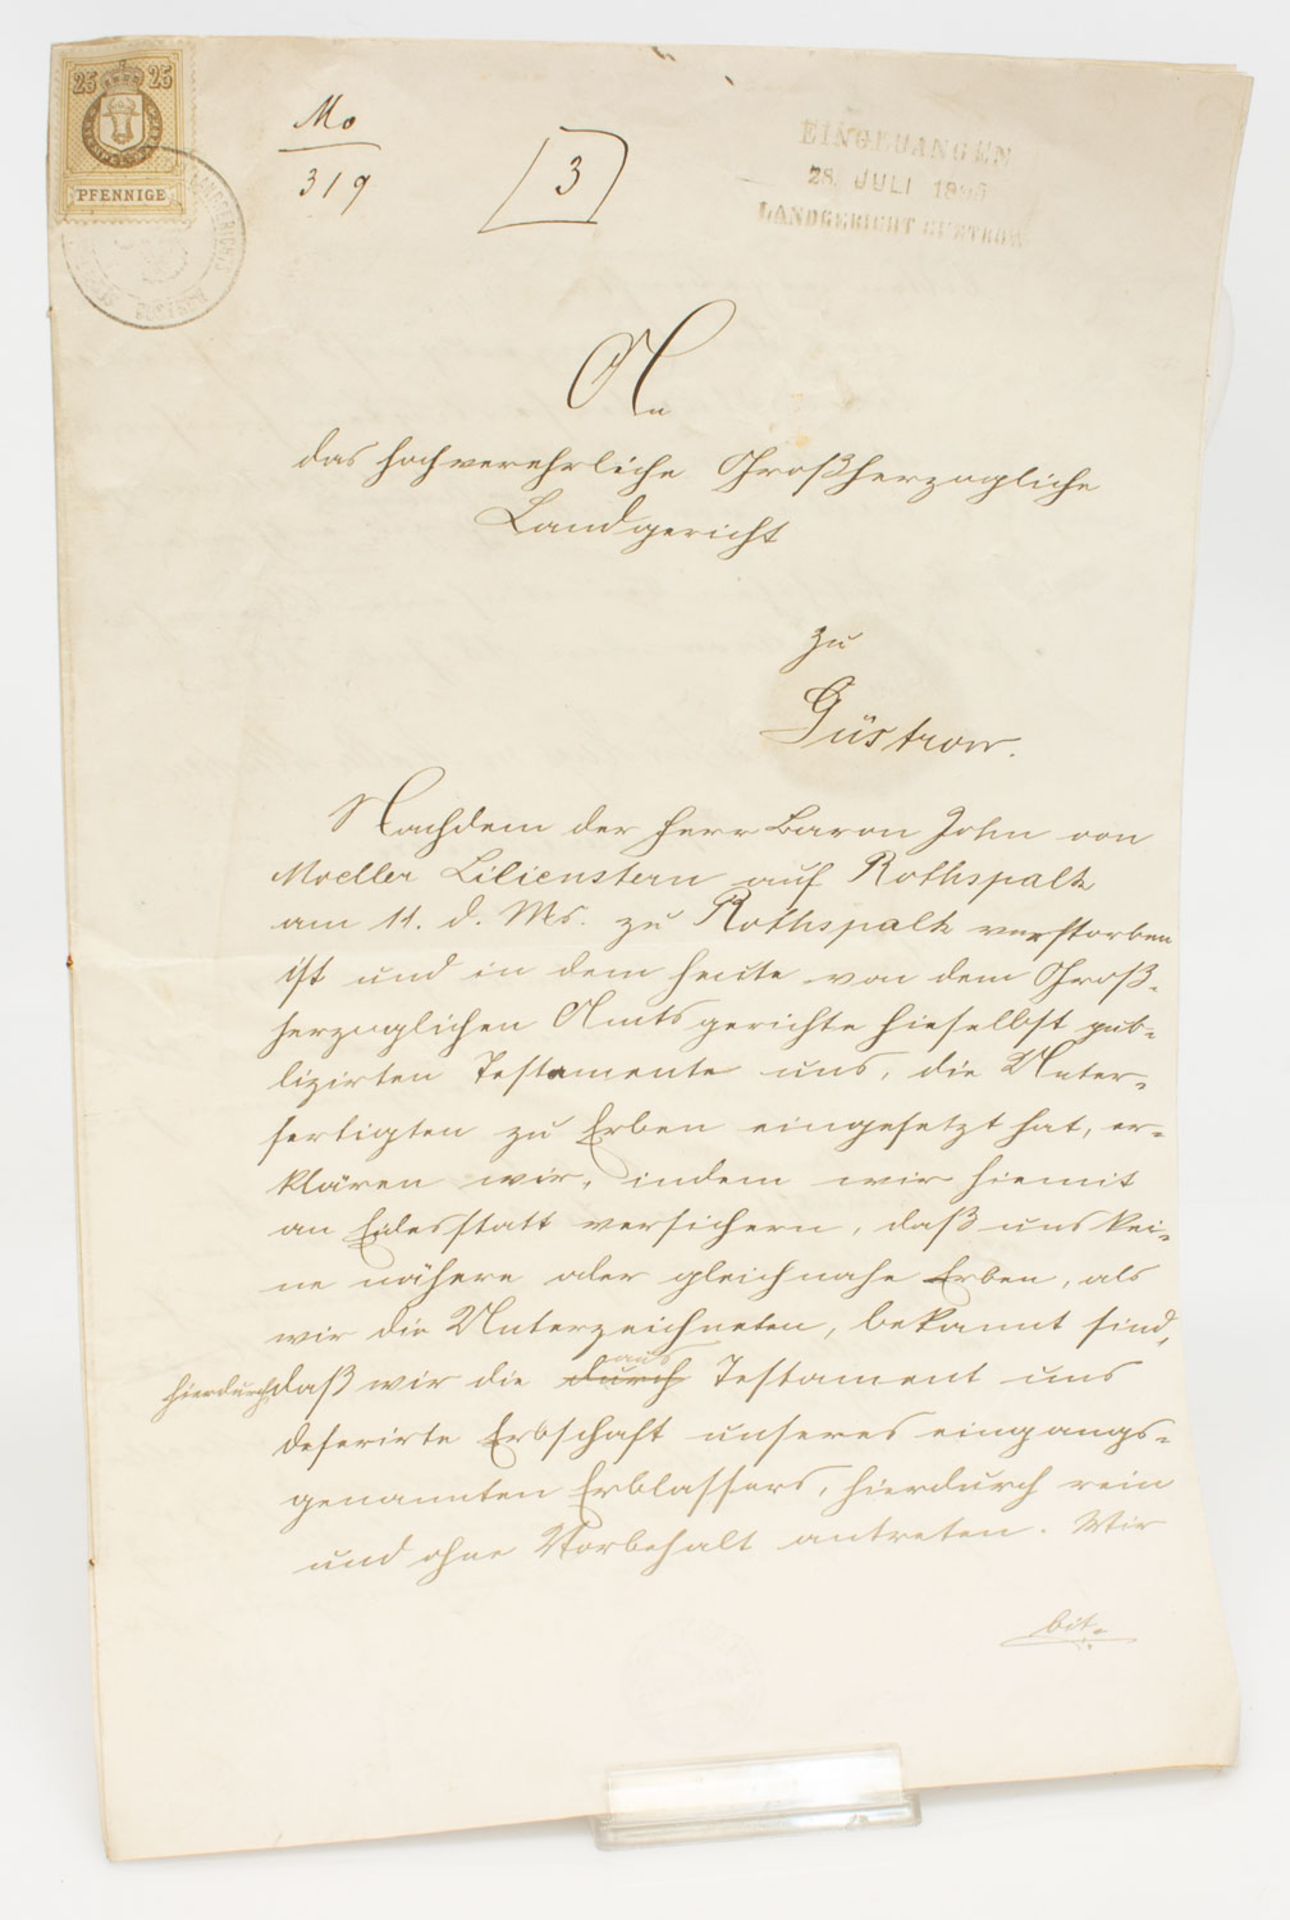 25 25
PFENNIGE
Mo
319
3
EINGEGANGEN
28. JULI
LANDGERICHT GÜSTROW
LANDGERICHTS
An
das hochverehrliche Großherzogliche
Landgericht
zu
Güstrow.
Nachdem der Herr Baron John von
Moeller Lilienstern auf Rothspalk
am 11. d. Ms. zu Rothspalk verstorben
ist und in dem heute von dem Groß-
herzoglichen Amtsgerichte hieselbst pub-
lizirten Testamente uns, die Unter-
fertigten zu Erben eingesetzt hat, er-
klären wir, indem wir hiemit
an Eidesstatt versichern, daß uns kei-
ne nähere oder gleichnahe Erben, als
wir die Unterzeichneten, bekannt sind,
hierdurch, daß wir die durch aus Testament uns
deferirte Erbschaft unseres eingangs-
genannten Erblassers, hierdurch rein
und ohne Vorbehalt antreten. Wir
bit-